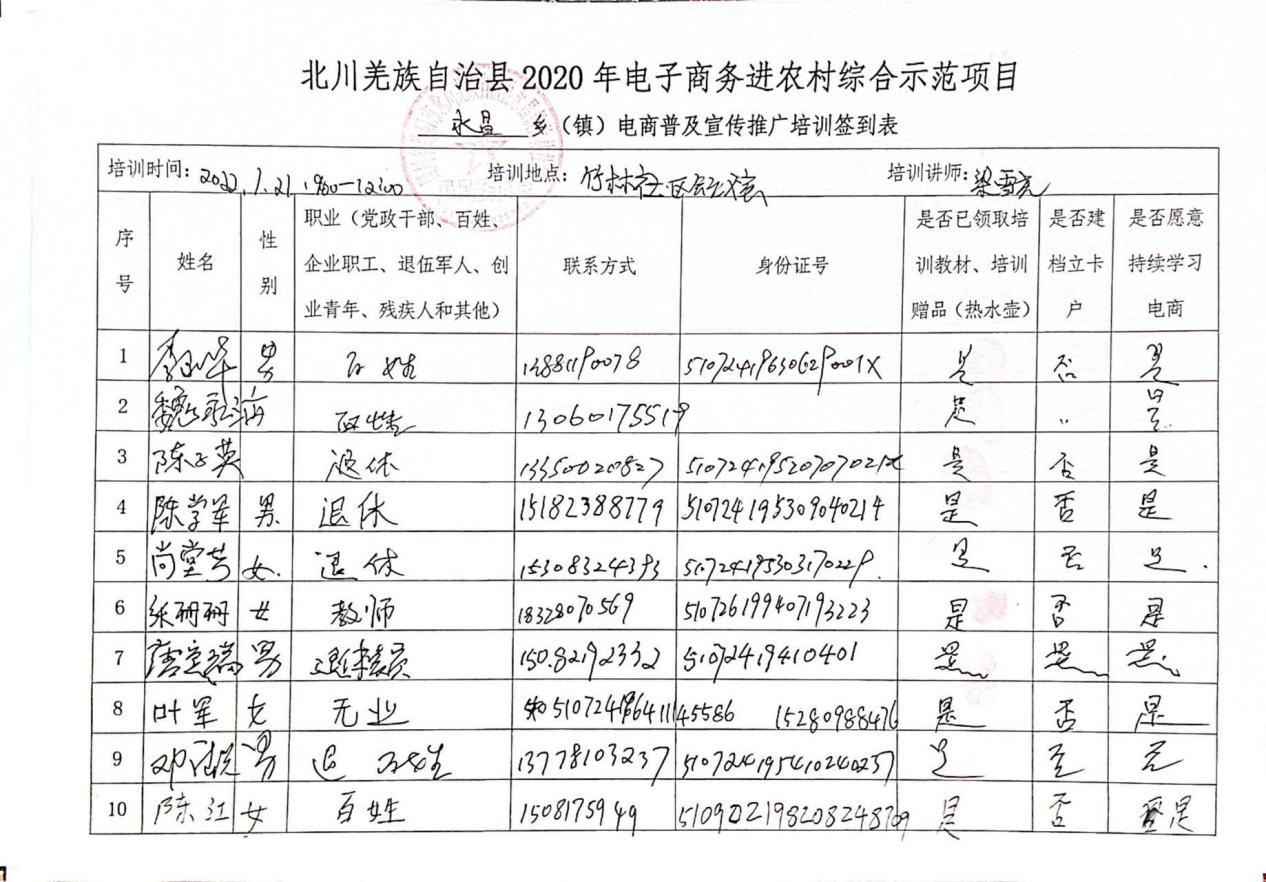 北川羌族自治县2020年电子商务进农村综合示范项目
永昌 乡（镇）电商普及宣传推广培训签到表
培训时间： 培训地点：竹林社区 培训讲师：
序号 姓名 性别 职业（党政干部、百姓、企业职工、退伍军人、创业青年、残疾人和其他） 联系方式 身份证号 是否已领取培训教材、培训赠品（热水壶） 是否建档立卡户 是否愿意持续学习电商
1 男 百姓 13881190078 51072419630629001X 是 否 是
2 百姓 13060175519 是 〃 是
3 陈 英 退休 13350020827 是 否 是
4 陈学军 男 退休 15182388779 510724195309040214 是 否 是
5 尚堂芳 女. 退休 15308324393 510724195303170229. 是 否 是.
6 张珊珊 女 教师 18328070569 510726199407193223 是 否 是
7 男 15082192332 51072419410401 是 是 是
8 叶军 女 无业 15280988476 是 否 是
9 邓 男 13778103237 510724195410240237 是 否
10 陈江 女 百姓 是 否 是